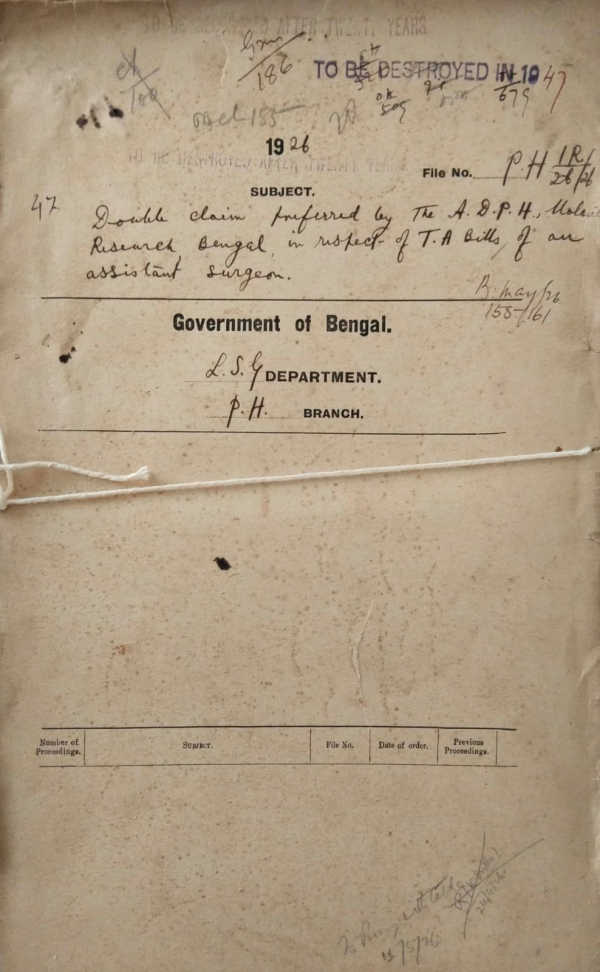 TO BE DESTROYED AFTER TWENTY YEARS
186
TO BE DESTROYED IN 1947
100
155
509
679
1926
TO BE DESTROYED AFTER TWENTY YEARS
File No. P. H 1R/
26/26
SUBJECT.
47
Double claim preferred by The A. D. P. H.,
Research, Bengal, in respect of T. A Bills, of an
assistant surgeon.
B. may/26
158-161
Government of Bengal.
L. S. G DEPARTMENT.
P. H. BRANCH.
Number of Proceedings. SUBJECT. File No. Date of order. Previous Proceedings.